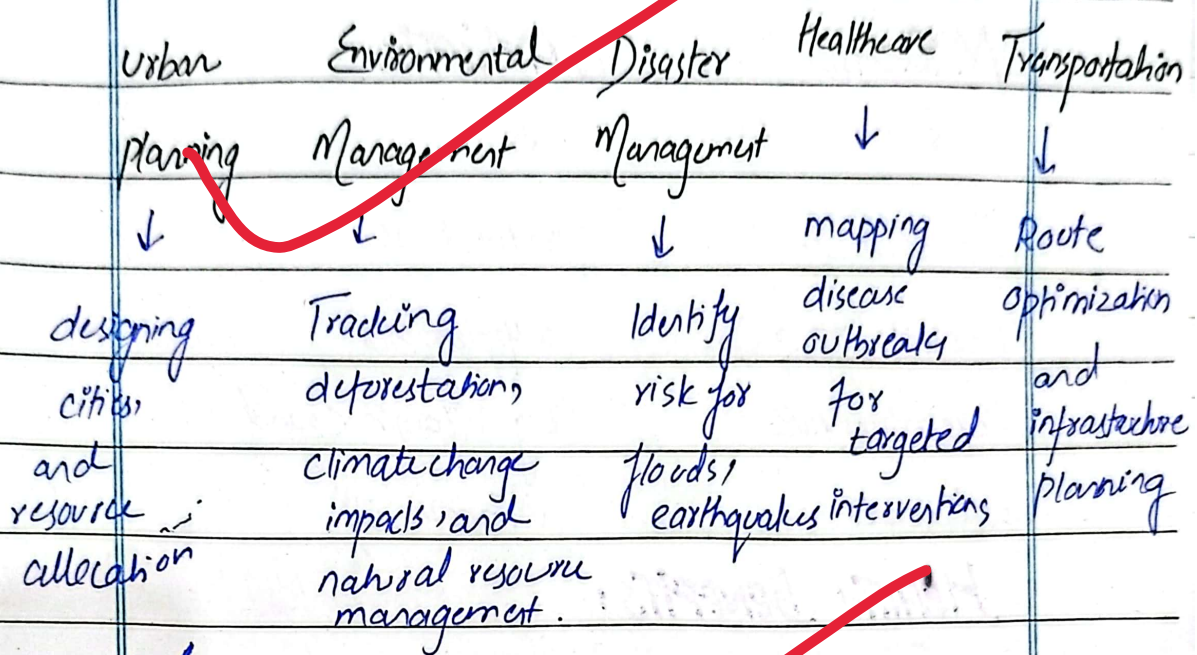 Urban
Planning
↓
designing
cities,
and
resource
allocation
Environmental
Management
↓
Tracking
deforestation,
climate change
impacts, and
natural resource
management.
Disaster
Management
↓
Identify
risk for
floods,
earthquakes
Healthcare
↓
mapping
disease
outbreaks
for
targeted
interventions
Transportation
↓
Route
optimization
and
infrastructure
planning